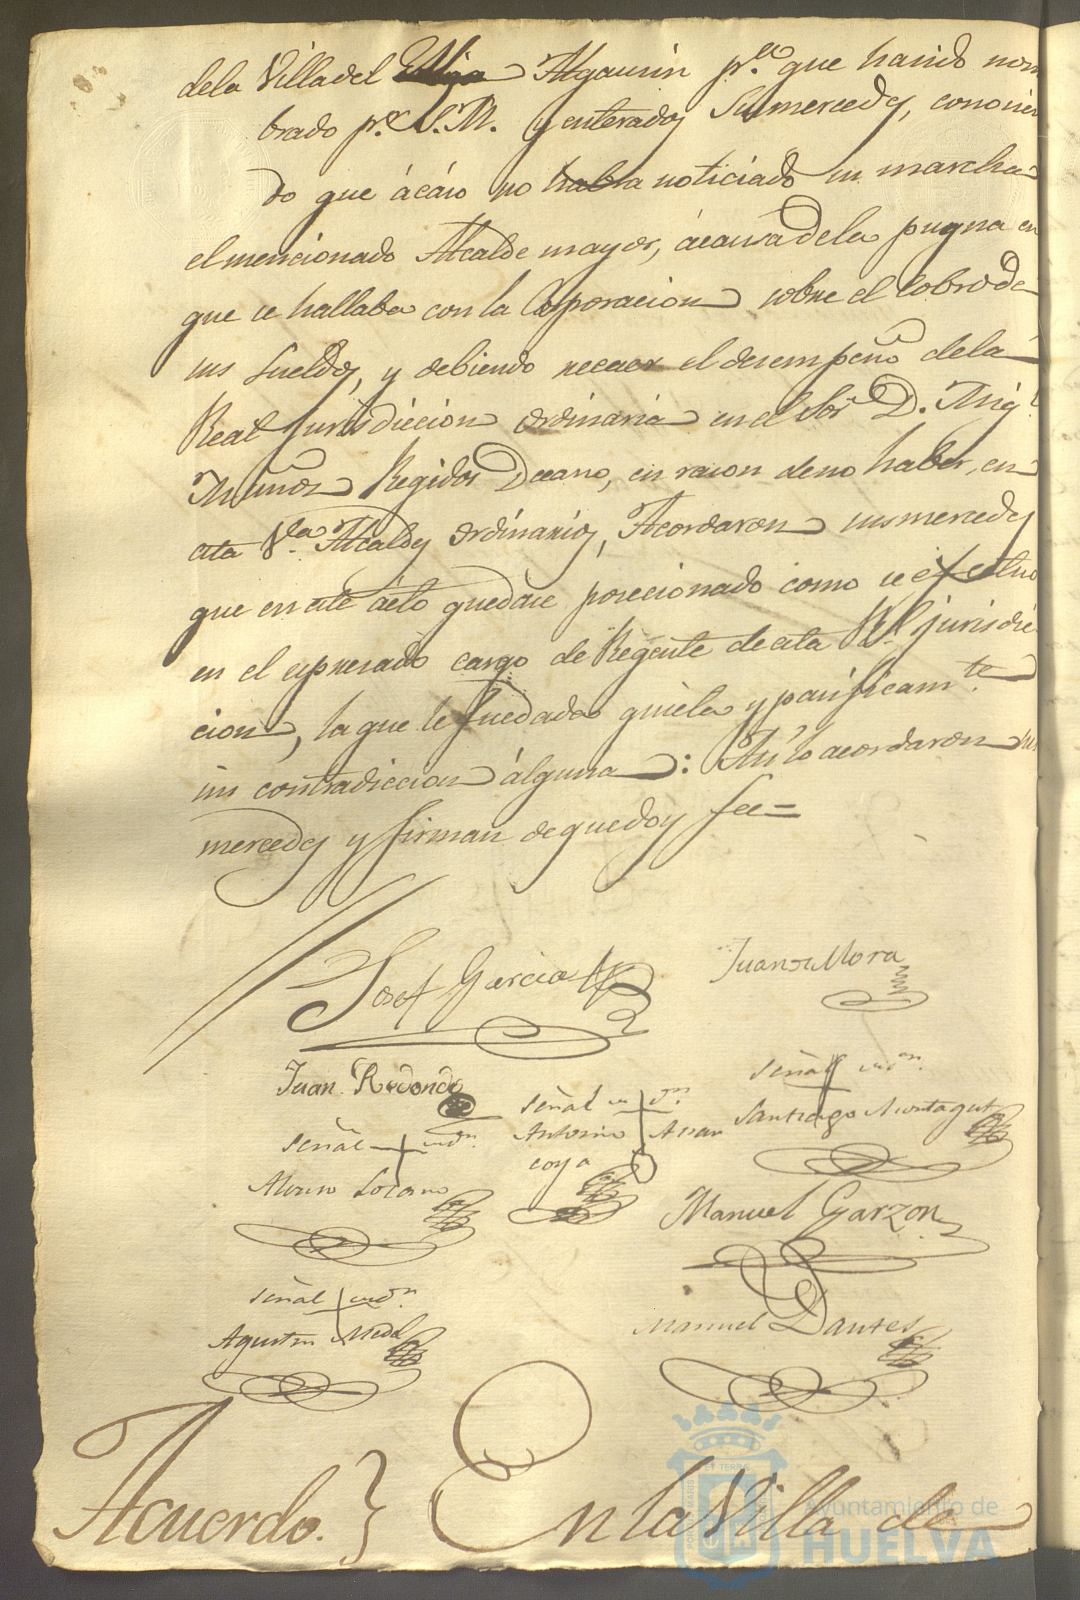 dela Villa del Algaurin p.ª que hasido nom
brado p.r S.M. y enterados Sumercedes, conocien
do que ácáso no habia noticiado su marcha
el mencionado Alcalde mayor, ácausa dela pugna en
que se hallaba con la Coporacion sobre el cobro de
sus Sueldos, y debiendo recaer el desempeño dela
Real jurisdiccion ordinaria en el Sor D.
Muñoz Regidor Decano, en razon deno haber, en
esta V.a Alcaldes ordinarios, Acordaron susmercedes
que en este ácto quedase posecionado como se efectuo
en el espresado cargo de Regente de esta Rl. jurisdic
cion, la que le fue dada quieta y pasificam.te
sin contradiccion álguna: Asi lo acordaron sus
mercedes y firman de que doy fee=
Josef Garcia
Juan de Mora
Juan Redondo
Señal + de
Santiago Montagut
Señal + de
Antonio Arran
coya
Señal + de
Alonso Lozano
Manuel Garzon
Señal + de
Agustin Medel
Manuel Dantes
Acuerdo. } En la Villa de
Ayuntamiento de
HUELVA